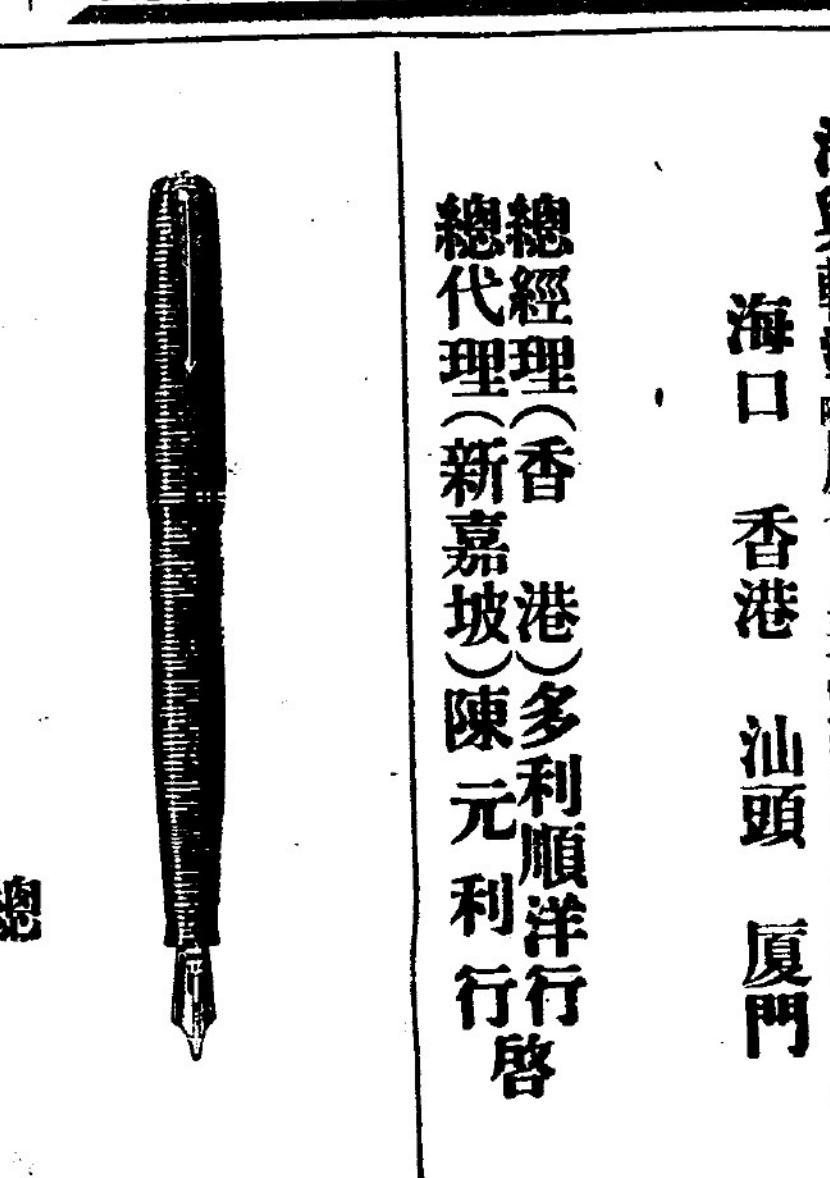 海口　香港　汕頭　厦門
總經理（香　港）多利順洋行
總代理（新嘉坡）陳元利行
啓
總